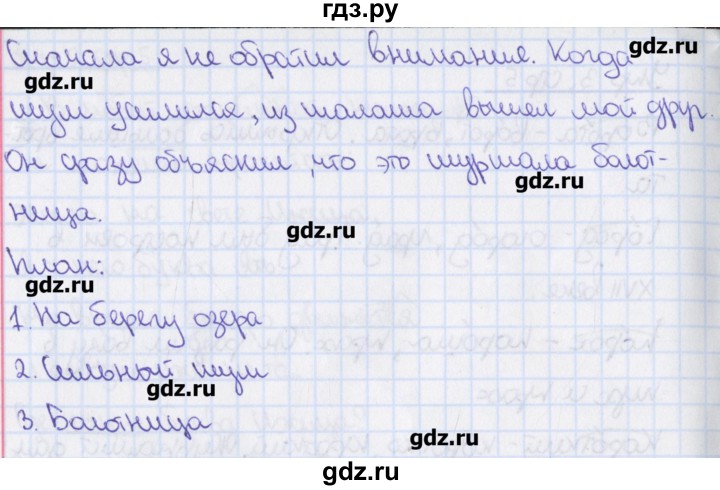 гдз.ру
Сначала я не обратил внимания. Когда
gdz.ru gdz.ru
шум усилился, из шалаша вышел мой друг.
gdz.ru
Он сразу объяснил, что это шуршала болот-
gdz.ru
ница.
gdz.ru
План:
gdz.ru
1. На берегу озера
gdz.ru
2. Сильный шум
gdz.ru
3. Болотница
gdz.ru
gdz.ru